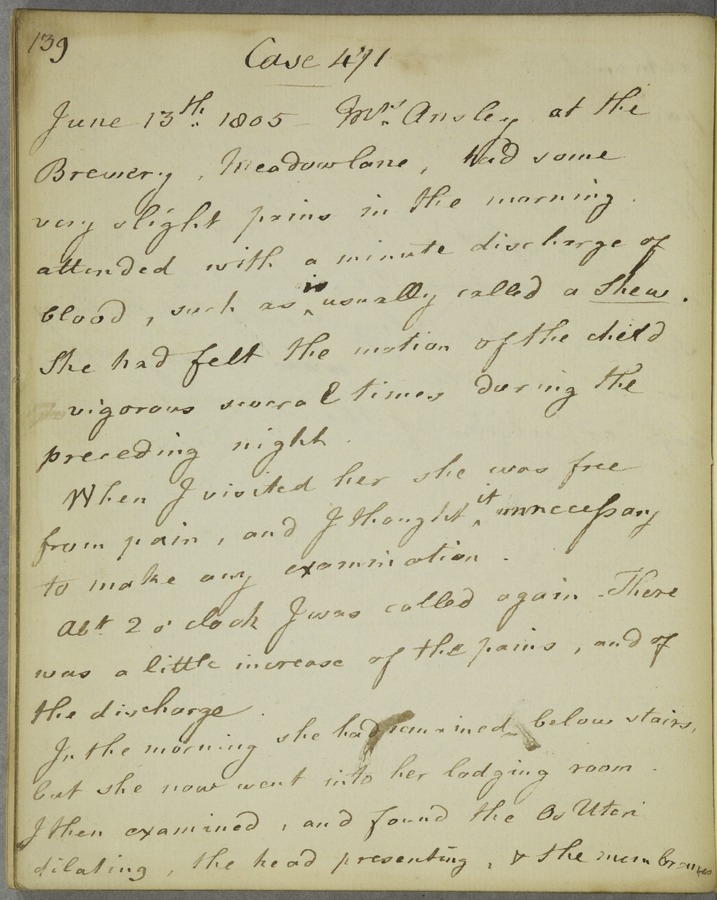 139
Case 471
June 13th. 1805 Mrs. Ansley at the
Brewery, Meadowlane, had some
very slight pains in the morning.
attended with a minute discharge of
blood, such as is usually called a Shew.
She had felt the motion of the child
vigorous several times during the
preceding night.
When I visited her she was free
from pain, and I thought it unnecessary
to make any examination.
Abt 2 o'clock I was called again. There
was a little increase of the pains, and of
the discharge.
In the morning she had remained below stairs,
but she now went into her lodging room.
I then examined, and found the Os Uteri
dilating, the head presenting, & the membranes